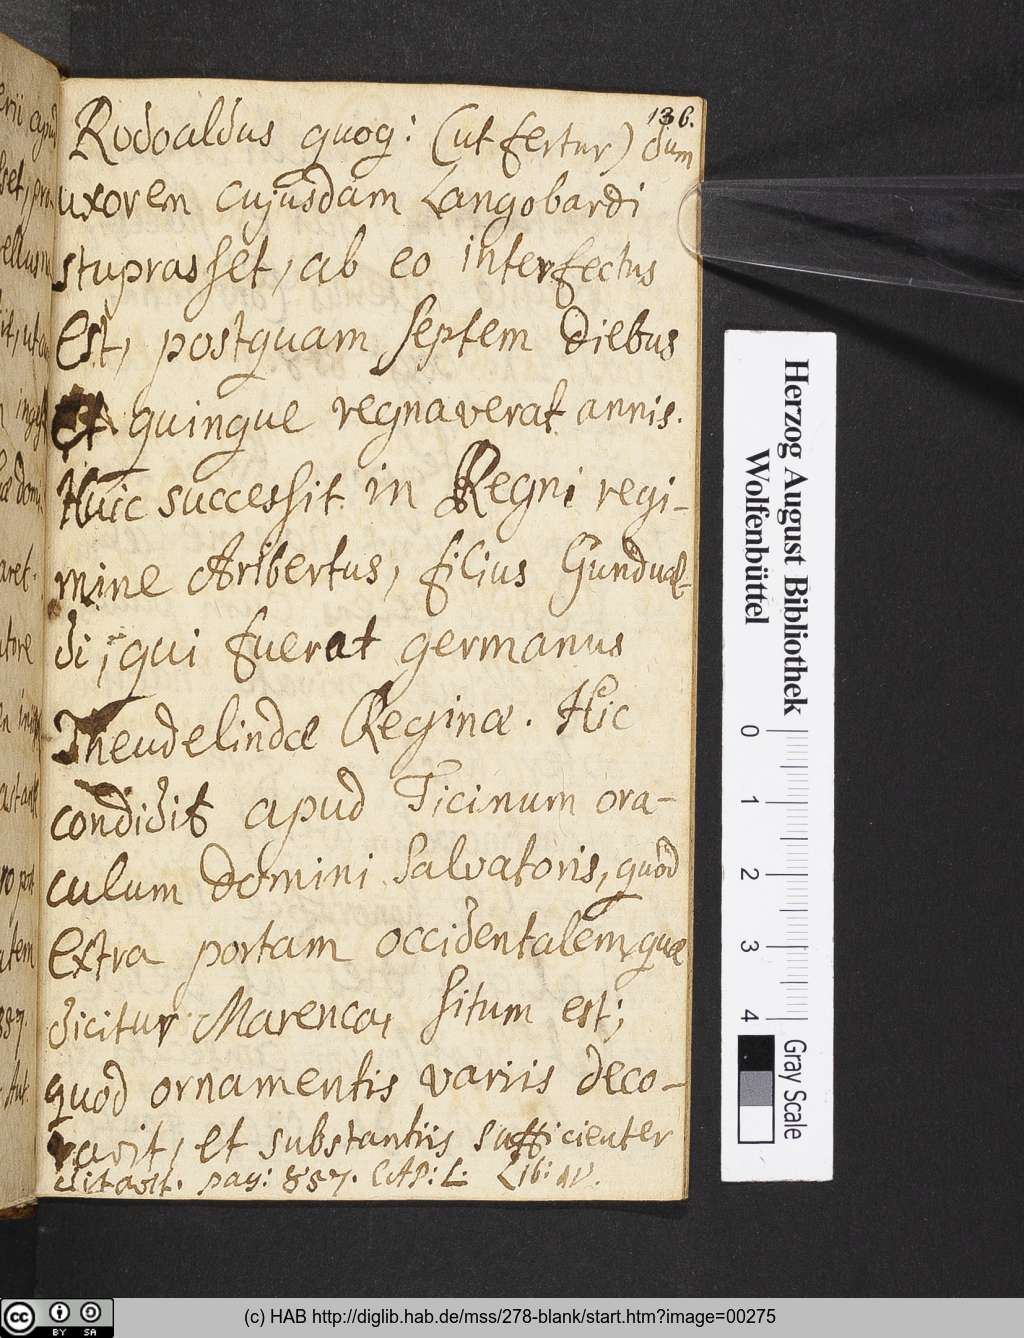 136.
Rodoaldus quoq: (ut fertur) dum
uxorem cujusdam Langobardi
stuprasset, ab eo interfectus
est, postquam septem diebus
et quinque regnaverat annis.
Huic successit in Regni regi-
mine Aribertus, filius Gundual-
di, qui fuerat germanus
Theudelindæ Reginæ. Hic
condidit apud Ticinum ora-
culum domini Salvatoris, quod
extra portam occidentalem, quæ
dicitur Marenca, situm est;
quod ornamentis variis deco-
ravit, et substantiis sufficienter
ditavit. pag: 857. CAP: L: Lib: IV.
Herzog August Bibliothek
Wolfenbüttel
0 1 2 3 4
Gray Scale
cc BY SA
(c) HAB http://diglib.hab.de/mss/278-blank/start.htm?image=00275